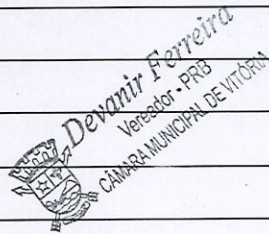 Devanir Ferreira
Vereador - PRB
CÂMARA MUNICIPAL DE VITÓRIA